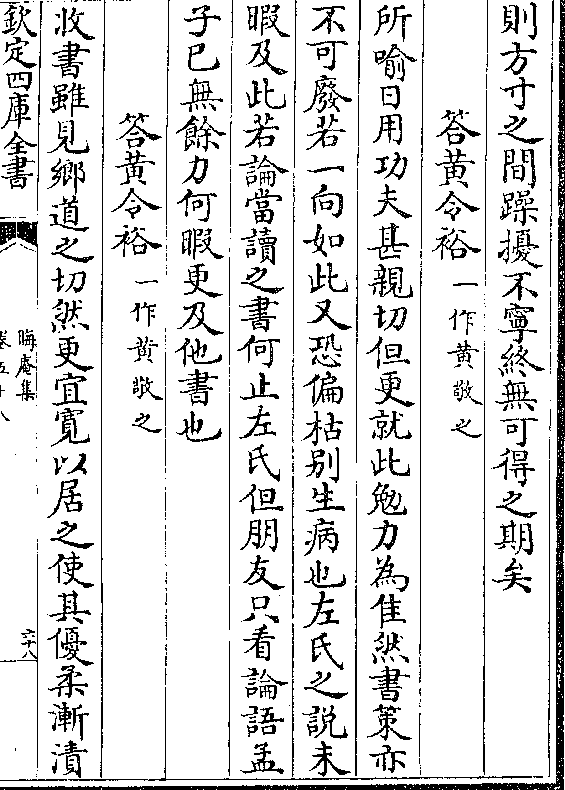 則方寸之間躁擾不寧終無可得之期矣
答黄令裕一作黄敬之
所喻日用功夫甚親切但更就此勉力為佳然書策亦
不可廢若一向如此又恐偏枯别生病也左氏之說未
暇及此若論當讀之書何止左氏但朋友只看論語孟
子已無餘力何暇更及他書也
答黄令裕一作黄敬之
收書雖見鄉道之切然更宜寛以居之使其優柔漸漬
欽定四庫全書
晦庵集
卷五十八